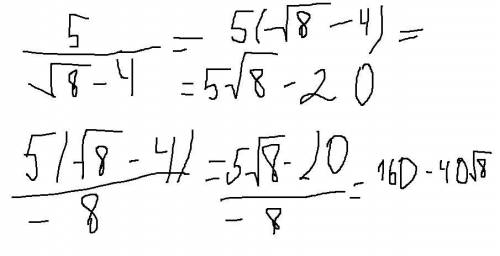 5/(√8 - 4) = 5(√8 - 4) =
= 5√8 - 20
5(√8 - 4)/(-8) = (5√8 - 20)/(-8) = 160 - 40√8